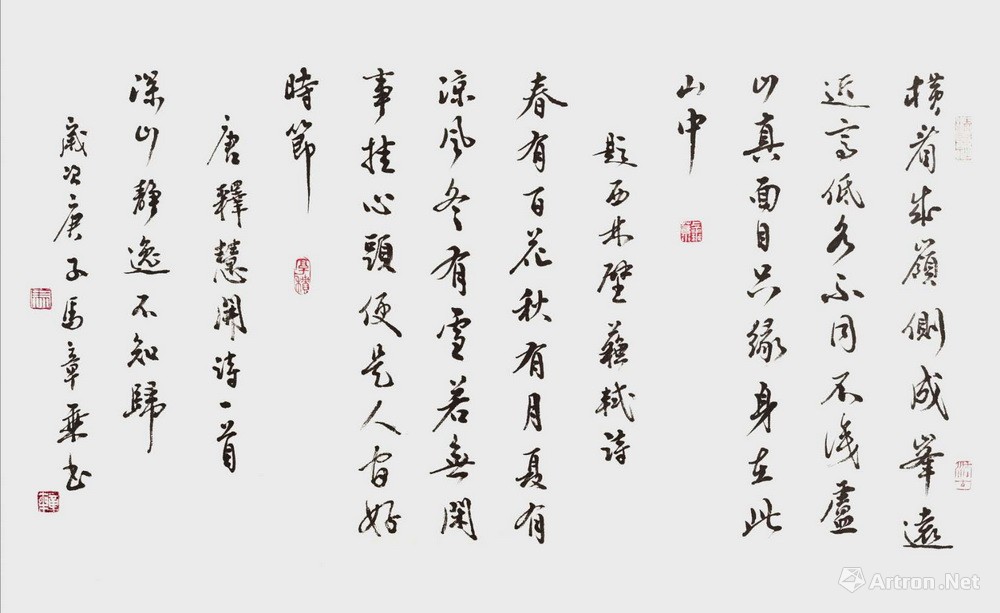 橫看成嶺側成峯遠
近高低各不同不識廬
山真面目只緣身在此
山中
題西林壁蘇軾詩
春有百花秋有月夏有
涼風冬有雪若無閑
事挂心頭便是人间好
時節
唐釋慧開詩一首
深山靜逸不知歸
歲次庚子馬章乘书
Artron.Net